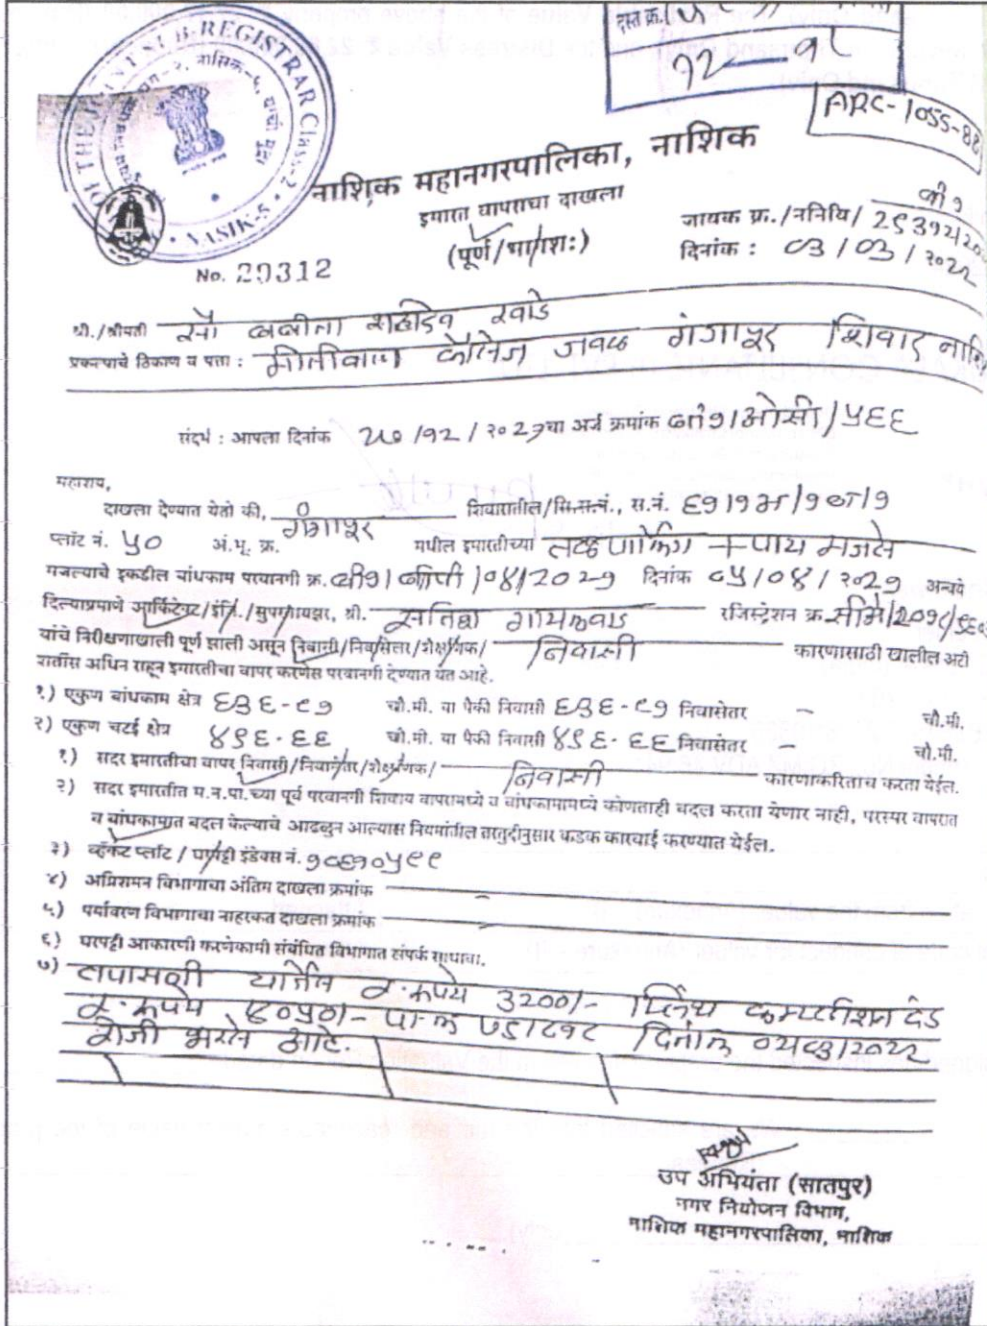 दस्त क्र.
१२ — १८
ARC-1055-88
OF THE JOINT SUB-REGISTRAR Class-2 • NASIK-5 •
नाशिक महानगरपालिका, नाशिक
इमारत वापराचा दाखला
(पूर्ण/भागशः)
जावक क्र./ननिवि/
दिनांक : ०३/०३/२०२२
No. 29312
श्री./श्रीमती सौ
प्रकल्पाचे ठिकाण व पत्ता : मोतीवाला कॉलेज जवळ गंगापूर शिवार नाशि
संदर्भ : आपला दिनांक २७/१२/२०२१चा अर्ज क्रमांक /ओसी/५६६
महाशय,
दाखला देण्यात येतो की, गंगापूर शिवारातील/सि.स.नं., स.नं.
प्लॉट नं. ५० अं.भू. क्र. मधील इमारतीच्या तळ पार्किंग + पाच मजले
मजल्याचे इकडील बांधकाम परवानगी क्र. /०४/२०२१ दिनांक ०५/०४/२०२१ अन्वये
दिल्याप्रमाणे आर्किटेक्ट/इंजि./सुपरवायझर, श्री. सतिश गायकवाड रजिस्ट्रेशन क्र.
यांचे निरीक्षणाखाली पूर्ण झाली असून निवासी/निवासेत्तर/शैक्षणिक/ निवासी कारणासाठी खालील अटी
शर्तीस अधिन राहून इमारतीचा वापर करणेस परवानगी देण्यात येत आहे.
१) एकुण बांधकाम क्षेत्र ६३६-८१ चौ.मी. या पैकी निवासी ६३६-८१ निवासेतर - चौ.मी.
२) एकुण चटई क्षेत्र ४९६-६६ चौ.मी. या पैकी निवासी ४९६-६६ निवासेतर - चौ.मी.
१) सदर इमारतीचा वापर निवासी/निवासेतर/शैक्षणिक/ निवासी कारणाकरिताच करता येईल.
२) सदर इमारतीत म.न.पा.च्या पूर्व परवानगी शिवाय वापरामध्ये व बांधकामामध्ये कोणताही बदल करता येणार नाही, परस्पर वापरात
व बांधकामात बदल केल्याचे आढळुन आल्यास नियमांतील तरतुदीनुसार कडक कारवाई करण्यात येईल.
३) व्हॅकंट प्लॉट / घरपट्टी इंडेक्स नं.
४) अग्निशमन विभागाचा अंतिम दाखला क्रमांक -
५) पर्यावरण विभागाचा नाहरकत दाखला क्रमांक -
६) घरपट्टी आकारणी करणेकामी संबंधित विभागात संपर्क साधावा.
७) तपासणी चार्जेस र.रुपये ३२००/- प्लिंथ दंड
र.रुपये पा.क्र. दिनांक ०२/०३/२०२२
रोजी भरले आहे.
उप अभियंता (सातपुर)
नगर नियोजन विभाग,
नाशिक महानगरपालिका, नाशिक